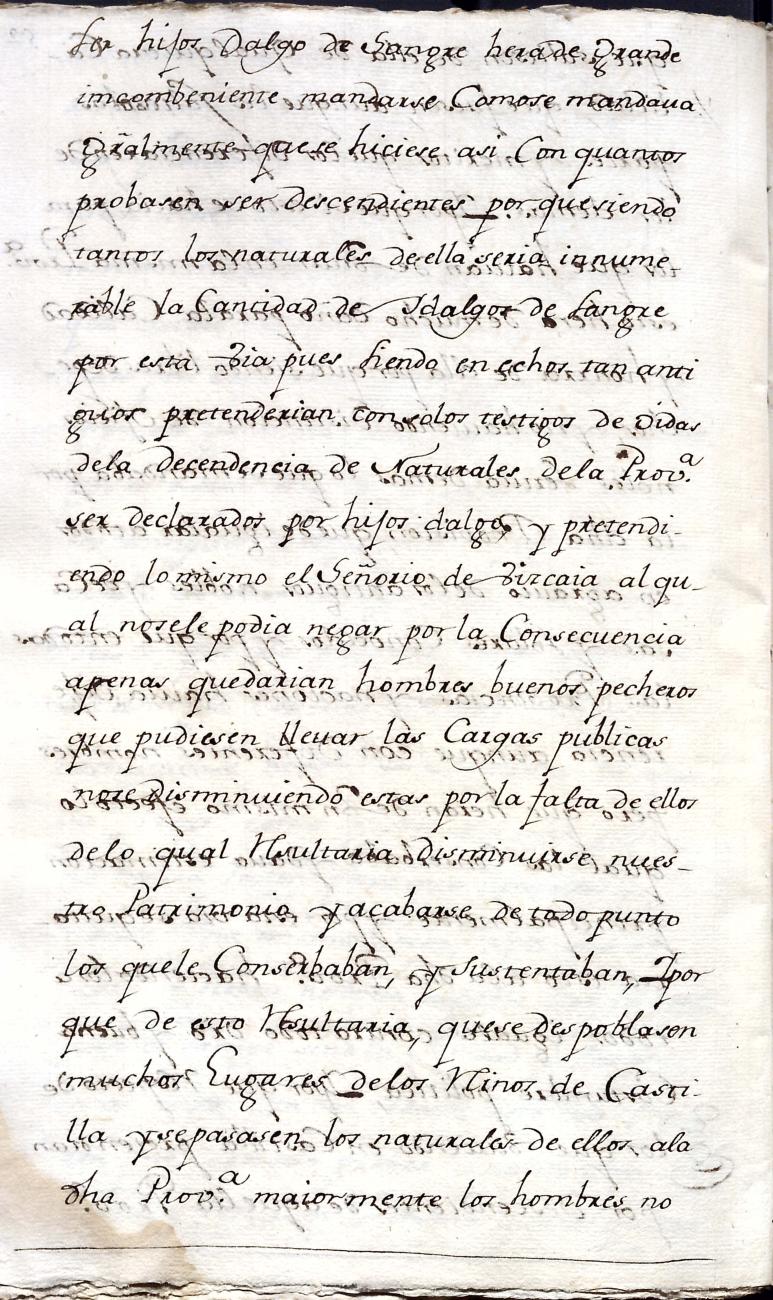 ser hijos Dalgo de Sangre hera de Grande
imcombeniente mandarse Como se mandaua
Gralmente que se hiciese asi Con quantos
probasen ser descendientes por que siendo
tantos los naturales de ella seria innume-
rable la Cantidad de Idalgos de sangre
por esta Via pues siendo en echos tan anti
guos pretenderian con solos testigos de oidas
dela decendencia de Naturales de la Prov.ª
ser declarados por hijos dalgo, y pretendi-
endo lo mismo el Señorio de Vizcaia al qu-
al nosele podia negar por la Consecuencia
apenas quedarian hombres buenos pecheros
que pudiesen lleuar las Cargas publicas
no se disminuiendo estas por la falta de ellos
de lo qual Rsultaria Disminuirse nues-
tro Patrimonio y acabarse de todo punto
los quele Conserbaban, y sustentaban, I por
que de esto Rsultaria, que se despoblasen
muchos Lugares de los Rinos de Casti-
lla y se pasasen los naturales de ellos ala
dha Prov.ª maiormente los hombres no